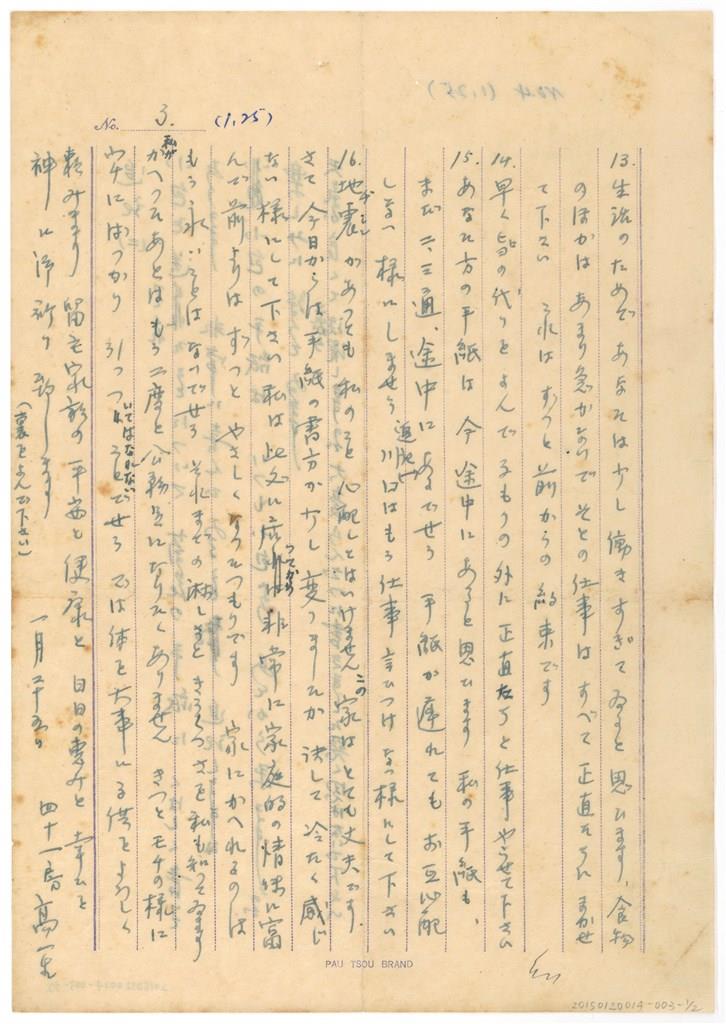 No. 3. (1,25)
13. 生活のためであなたは少し働きすぎてゐると思ひます、食物
のほかはあまり急がないでそとの仕事はすべて正直たちにまかせ
て下さい これはずっと前からの約束です
14. 早く皆の代りをよんで子もりの外に正直たちと仕事やらせて下さい
15. あなた方の手紙は今途中にあると思ひます 私の手紙も、
まだ二、三通、途中にあるでせう 手紙が遅れてもお互心配
しない様にしませう 川口はもう仕事言ひつけない様にして下さい
16. 地震があっても私のこと心配してはいけません この家はとても丈夫です
さて今日からは手紙の書方が少し変りますが決して冷たく感じ
ない様にして下さい 私は此処に来てから非常に家庭的の情味に富
んで前よりはずっとやさしくなったつもりです 家にかへれるのは
もう永いことはないでせう それまでの淋しさときうくつさを私も知ってゐます
私がかへったあとはもう二度と公務員になりたくありません きっとモチの様に
家にばっかり引っついてはなれないことでせう では体を大事に子供をよろしく
頼みます 留守家族の平安と健康と日日の恵みと幸ひを
神に御祈り致します 一月二十五日 四十一房 高一生
(裏をよんで下さい)
PAU TSOU BRAND
20150120014-003-1/2